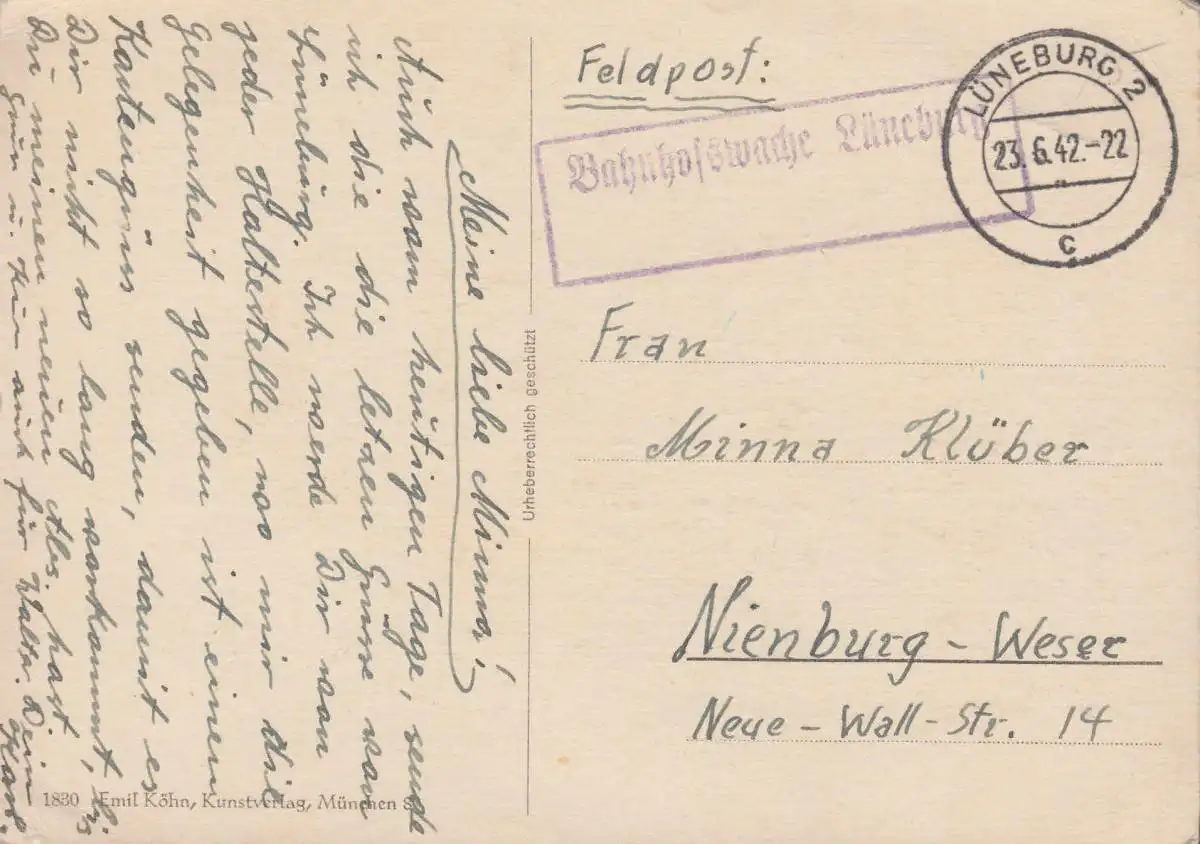 Meine liebe Minna!
Auch vom heutigen Tage, sende
ich die die letzen Grüsse von
Lüneburg. Ich werde Dir von
jeder Haltestelle, wo mir die
Gelegenheit gegeben ist einen
Kartengruss senden, damit es
Dir nicht so lang vorkommt, bis
Du meinen neuen Abs. hast.
Gruss u. Kuss auch für Walter. Dein
Hans.
Urheberrechtlich geschützt
1830 Emil Köhn, Kunstverlag, München 8
Feldpost:
Bahnhofswache Lüneburg
LÜNEBURG 2
23.6.42.-22
c
Frau
Minna Klüber
Nienburg-Weser
Neue-Wall-Str. 14